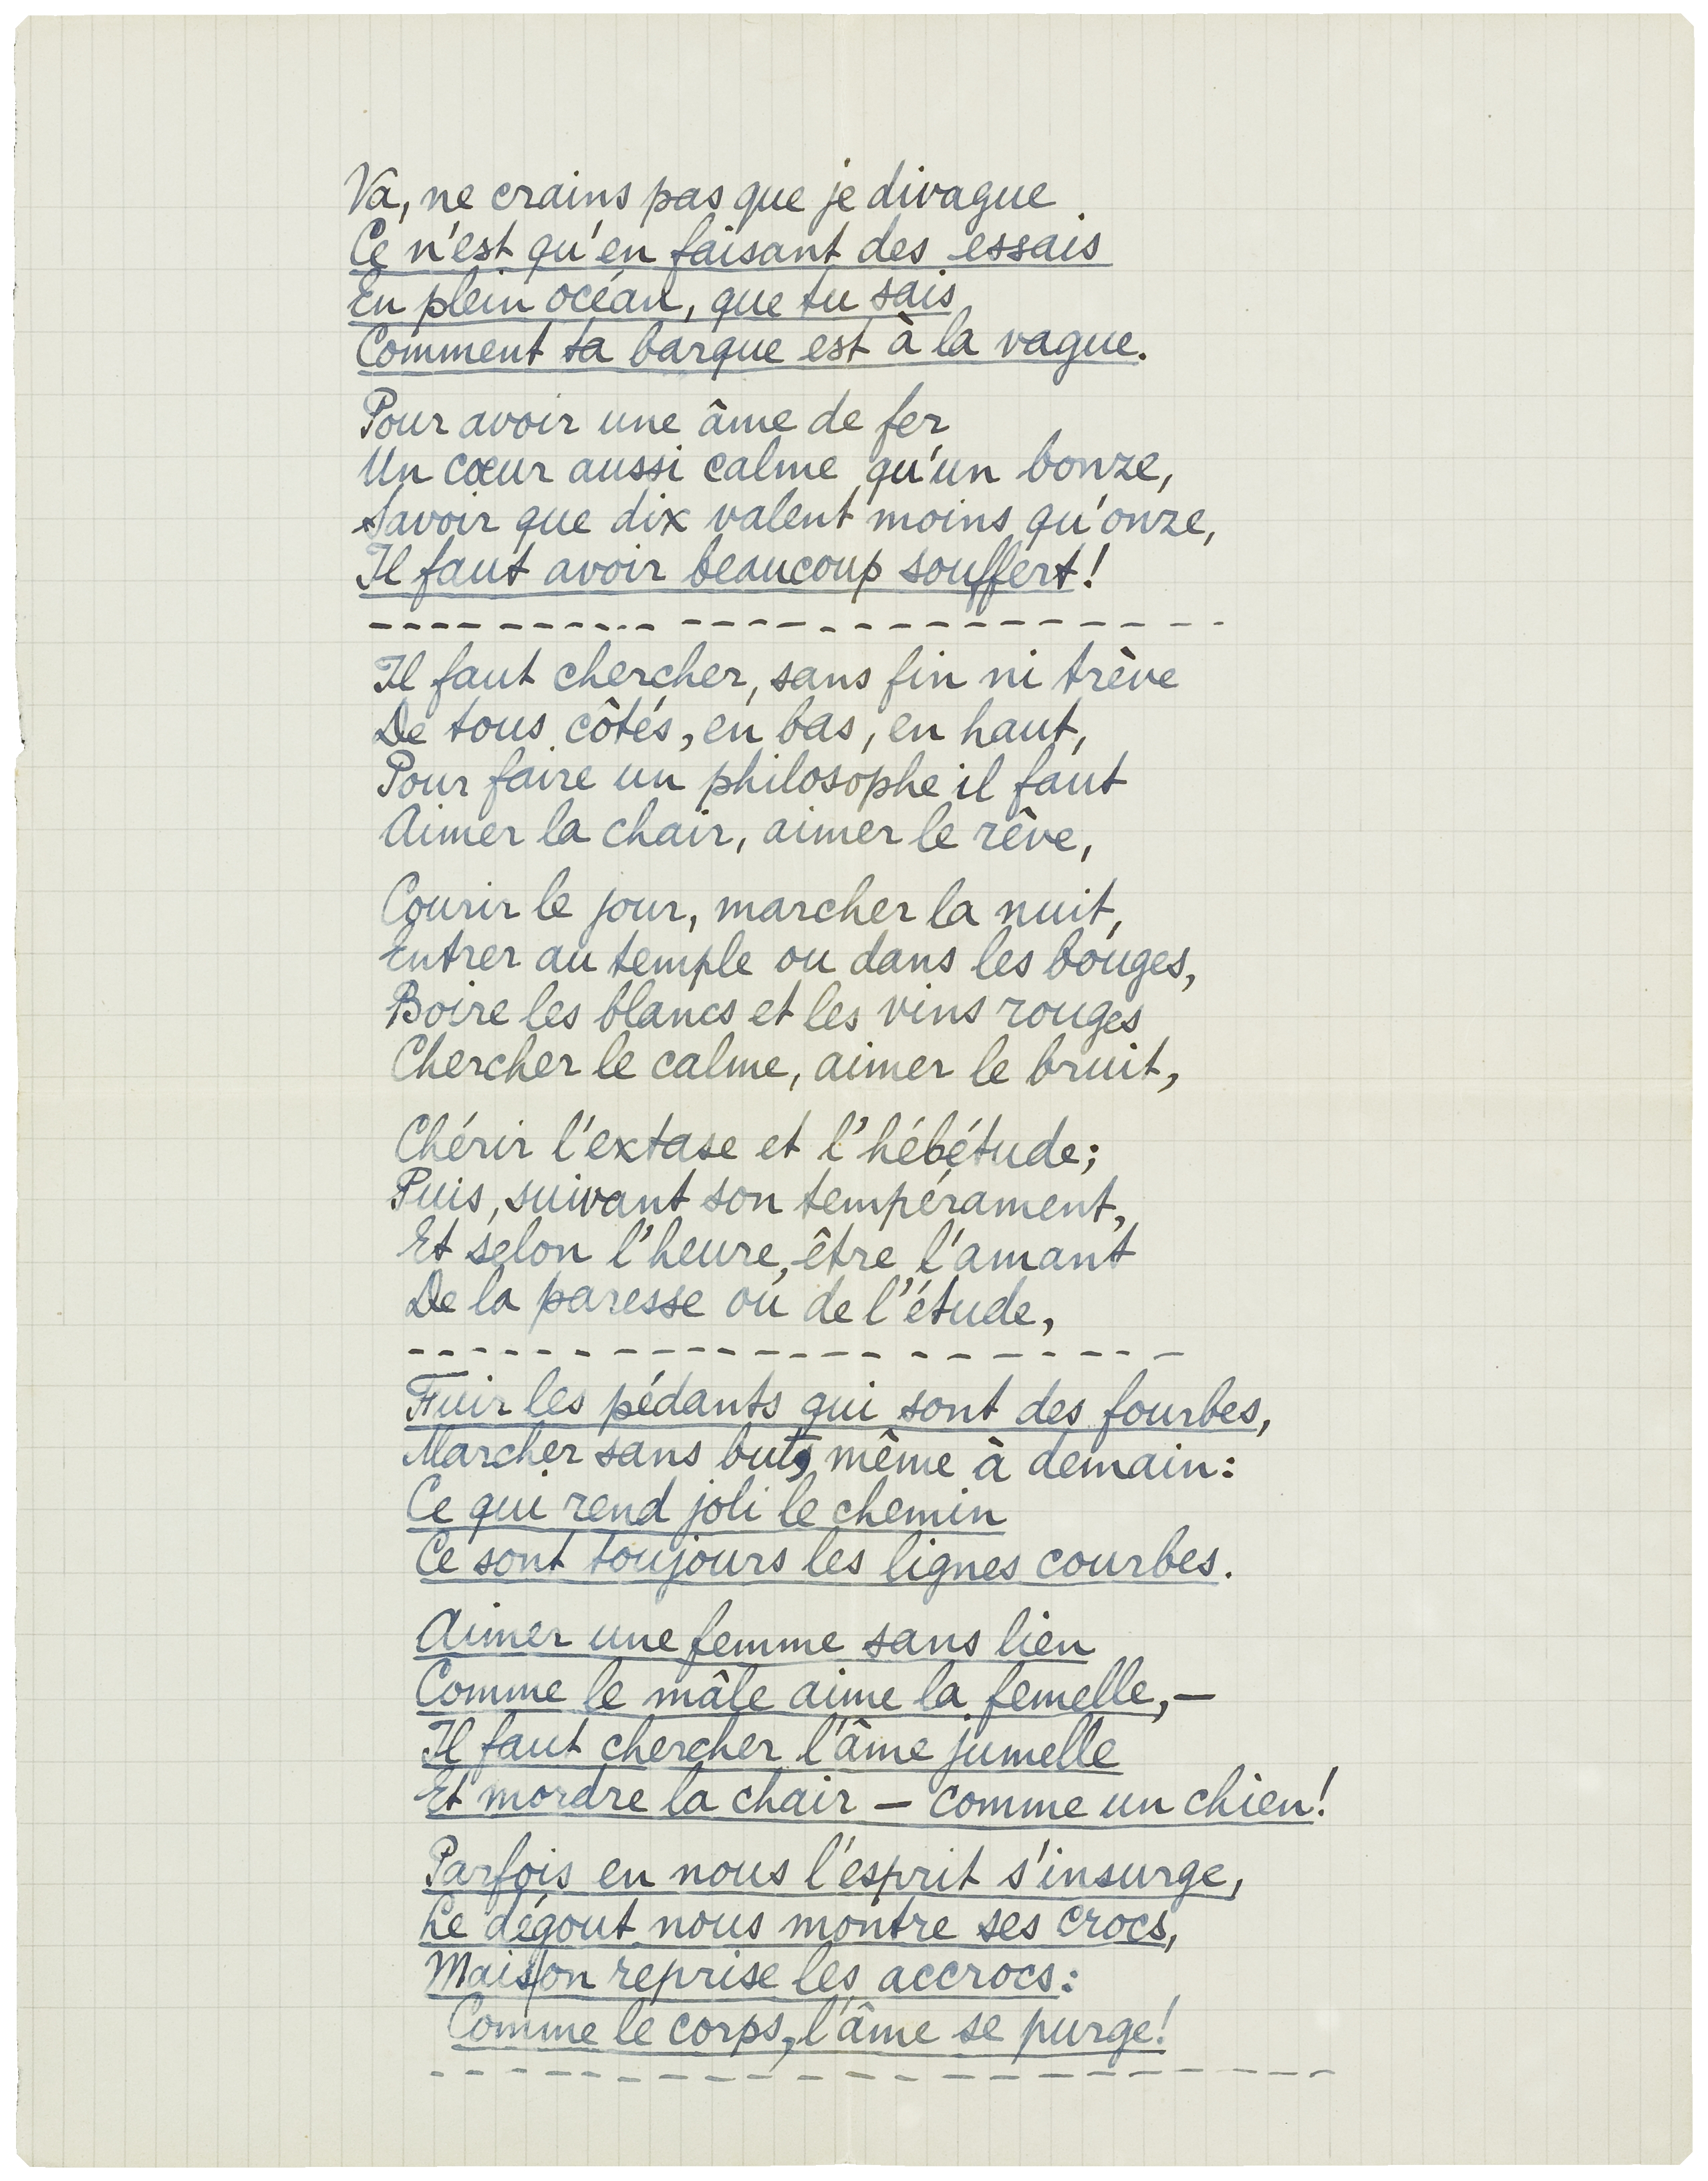 Va, ne crains pas que je divague
Ce n'est qu'en faisant des essais
En plein océan, que tu sais
Comment ta barque est à la vague.
Pour avoir une âme de fer
Un cœur aussi calme qu'un bonze,
Savoir que dix valent moins qu'onze,
Il faut avoir beaucoup souffert!
Il faut chercher, sans fin ni trève
De tous côtés, en bas, en haut,
Pour faire un philosophe il faut
Aimer la chair, aimer le rêve,
Courir le jour, marcher la nuit,
Entrer au temple ou dans les bouges,
Boire les blancs et les vins rouges
Chercher le calme, aimer le bruit,
Chérir l'extase et l'hébétude;
Puis, suivant son tempérament,
Et selon l'heure, être l'amant
De la paresse ou de l'étude,
Fuir les pédants qui sont des fourbes,
Marcher sans buts, même à demain:
Ce qui rend joli le chemin
Ce sont toujours les lignes courbes.
Aimer une femme sans lien
Comme le mâle aime la femelle,—
Il faut chercher l'âme jumelle
Et mordre la chair — comme un chien!
Parfois en nous l'esprit s'insurge,
Le dégout nous montre ses crocs,
Mais on reprise les accrocs:
Comme le corps, l'âme se purge!